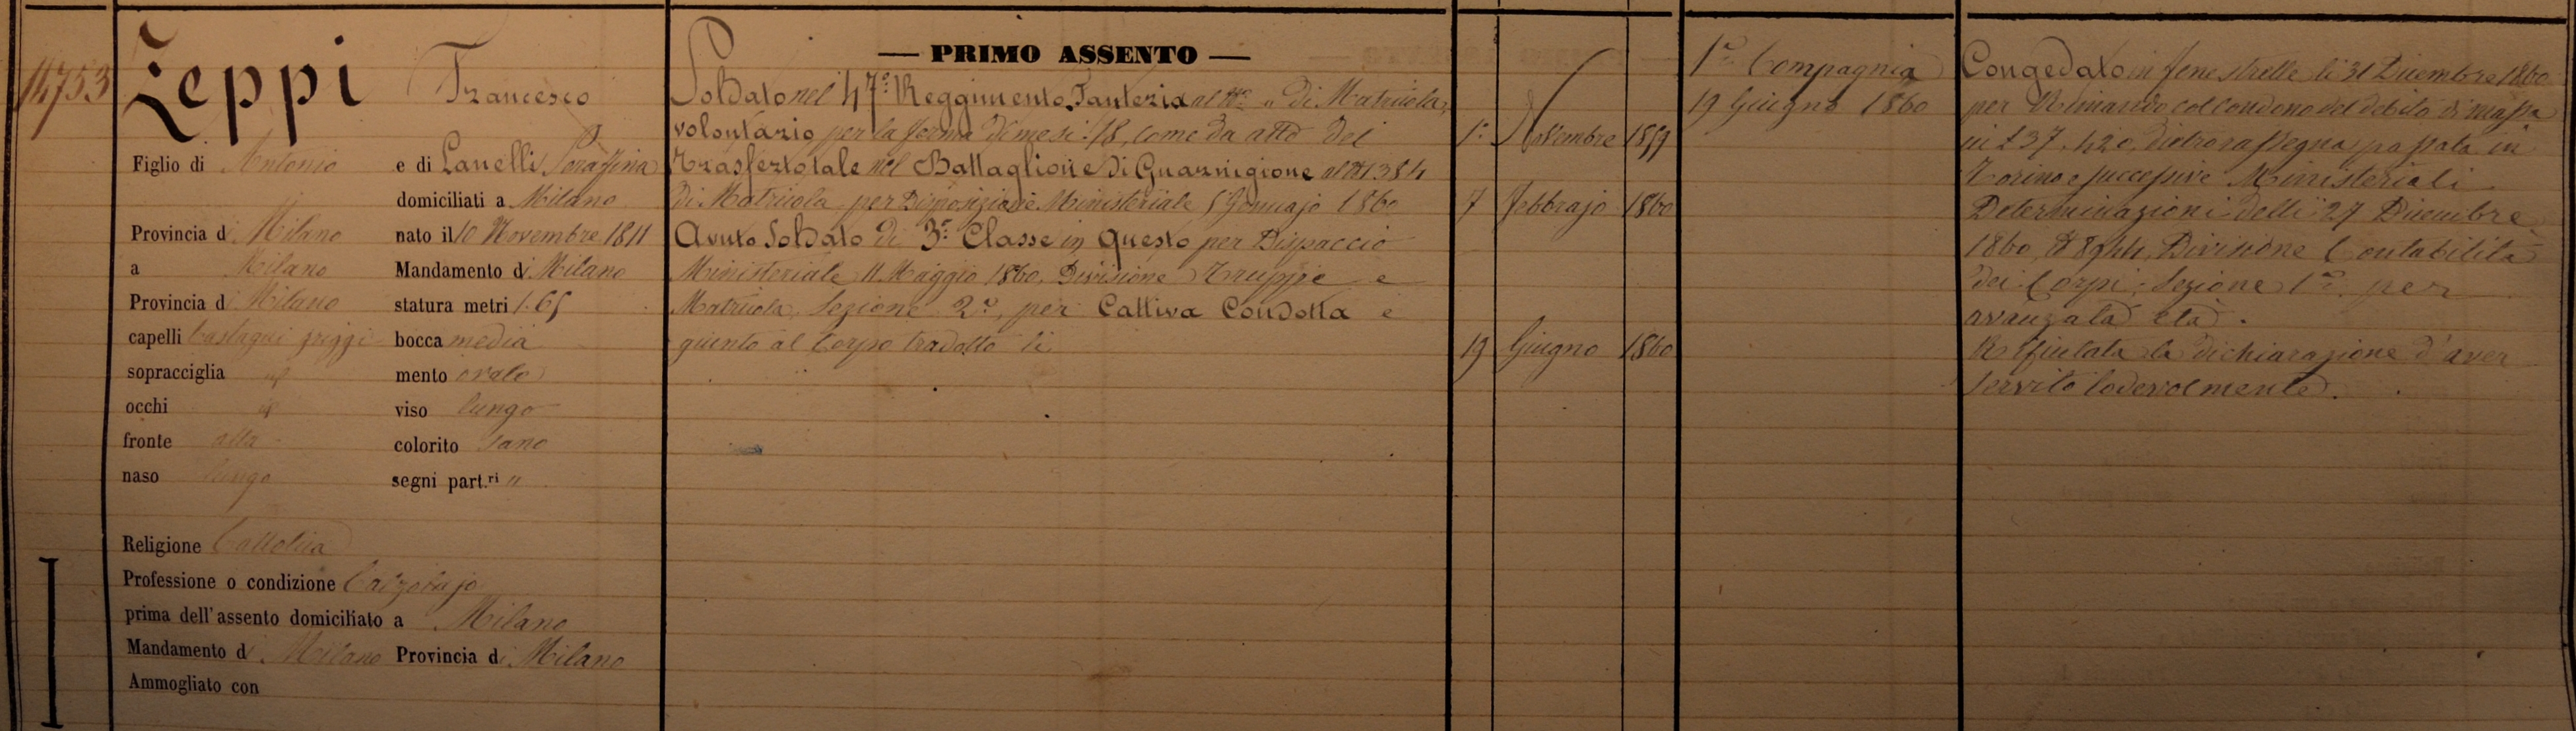 14753
Zeppi Francesco
Figlio di Antonio e di Lanelli Serafina
domiciliati a Milano
Provincia di Milano nato il 10 Novembre 1811
a Milano Mandamento di Milano
Provincia di Milano statura metri 1.65
capelli castagni griggi bocca media
sopracciglia id mento ovale
occhi id viso lungo
fronte alta colorito sano
naso lungo segni part.ri "
Religione Cattolica
Professione o condizione Calzolajo
prima dell'assento domiciliato a Milano
Mandamento di Milano Provincia di Milano
Ammogliato con
— PRIMO ASSENTO —
Soldato nel 47° Reggimento Fanteria al N° " di Matricola,
volontario per la ferma di mesi 18, come da atto del 1° Novembre 1859
Trasferto tale nel Battaglione di Guarnigione al N° 1384
di Matricola per Disposizione Ministeriale 5 Gennajo 1860 7 Febbrajo 1860
Avuto Soldato di 3ª Classe in questo per Dispaccio
Ministeriale 11 Maggio 1860, Divisione Truppe e
Matricola, Sezione 2ª, per Cattiva Condotta e
giunto al Corpo tradotto li 19 Giugno 1860
1ª Compagnia
19 Giugno 1860
Congedato in Fenestrelle li 31 Dicembre 1860
per Rimando col condono del debito di massa
in £ 37.420, dietro rassegna passata in
Torino e successive Ministeriali
Determinazioni delli 27 Dicembre
1860, N° 8944, Divisione Contabilità
dei Corpi, Sezione 1ª per
avanzata età.
Rifiutata la dichiarazione d'aver
servito lodevolmente.